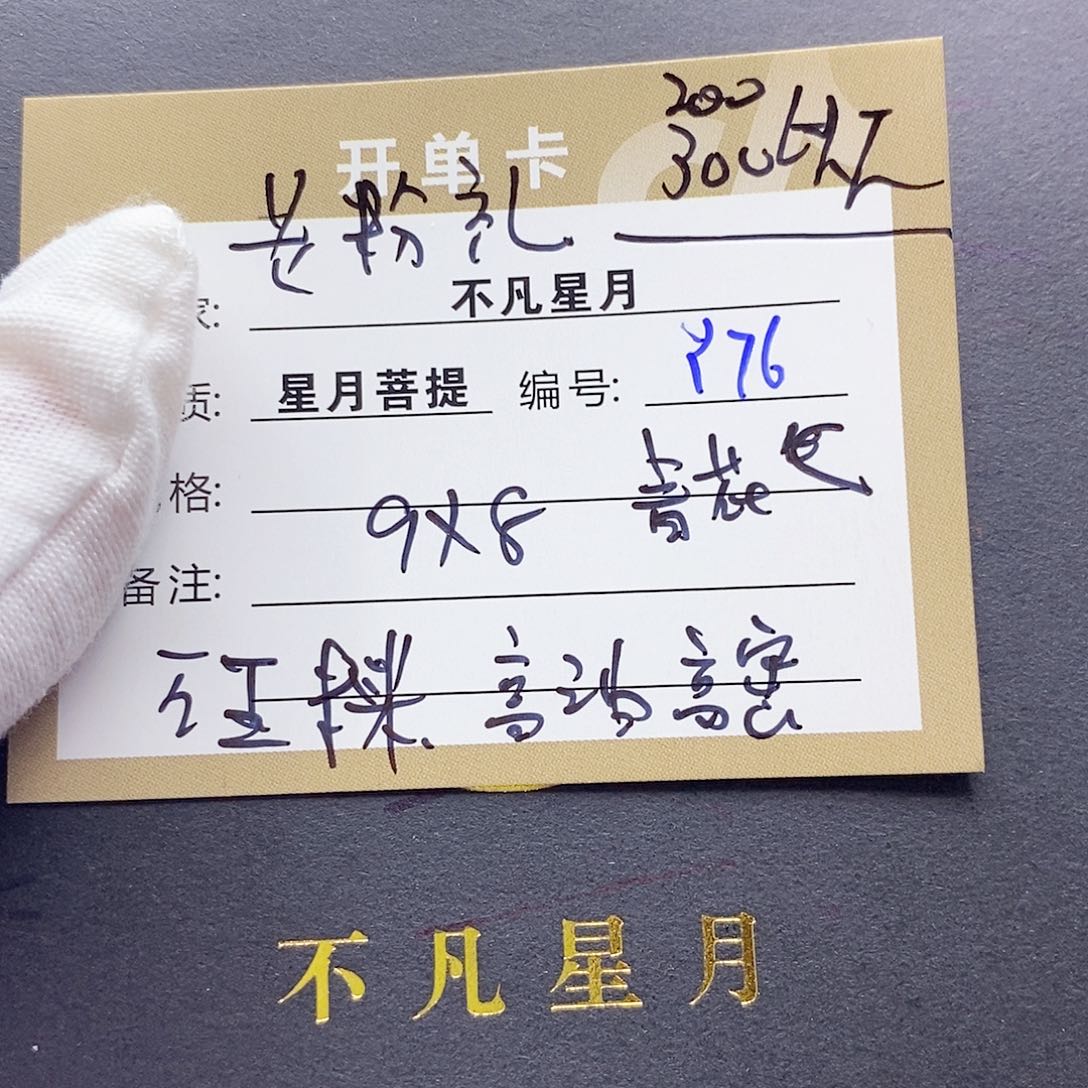 200
开单卡
300
粉礼
家: 不凡星月
质: 星月菩提 编号: Y76
格: 9X8 青花
备注:
高油高密
不凡星月